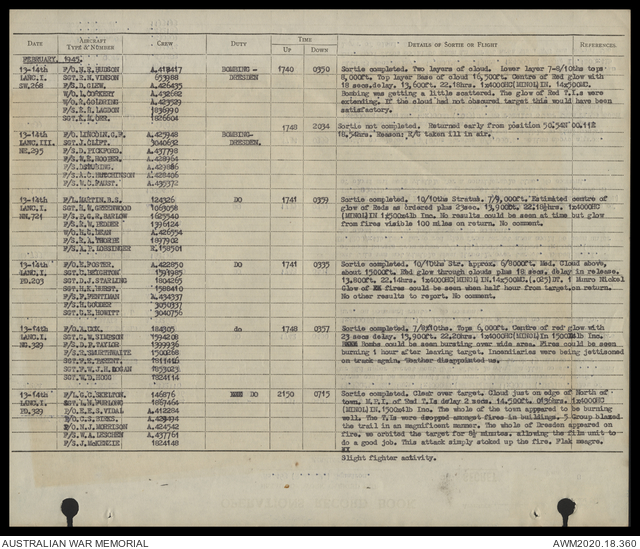 DATE AIRCRAFT TYPE & NUMBER CREW DUTY TIME UP DOWN DETAILS OF SORTIE OR FLIGHT REFERENCES
FEBRUARY, 1945.
13-14th F/O. HUDSON A.418417 BOMBING - 1740 0350 Sortie completed. Two layers of cloud. Lower layer 7-8/10ths tops
LANC.I. SGT. VINSON 653988 DRESDEN 8,000ft. Top layer Base of cloud 16,500ft. Centre of Red glow with
SW,268 A.426435 18 secs.delay, 13,600ft. 22.18hrs. 1x4000EC(MINOL)IN, 14x500MC.
A.432682 Bombing was getting a little scattered. The glow of Red T.I.s were
A.423529 extending. If the cloud had not obscured target this would have been
1836990 satisfactory.
1826604
1748 2034 Sortie not completed. Returned early from position 50.54N 00.11E
13-14th F/O LINCOLN.G.P. A.425948 BOMBING- 18.54hrs. Reason; R/G taken ill in air.
LANC.III. SGT. J.CLIFT. 3040632 DRESDEN.
NE,295 F/S. D. PICKFORD. A.437798
F/S. W.E. HOOPER. A.428964
A.429886
F/S. A.G. HUTCHINSON A.428406
F/S. W.C. FAUST. A.435372
13-14th F/L. MARTIN.B.S. 124326 DO 1741 0359 Sortie completed. 10/10ths Stratus. 7/9,000ft. Estimated centre of
LANC.I. SGT. GREENWOOD 1063058 glow of Reds as ordered plus 23sec. 13,900ft. 22.18½hrs. 1x4000EC
NN,721 F/S. BARLOW 1625540 (MINOL)IN 1x500x4lb Inc. No results could be seen at time but glow
1396124 from fires visible 100 miles on return. No comment.
DEAN A.426554
THORIE 1897902
LOBSINGER R.158501
13-14th F/O. E. FOSTER. A.422850 DO 1741 0335 Sortie completed. 10/10ths Str. approx. 6/8000ft. Med. Cloud above,
LANC.I. SGT. C. HEIGHTON 1591985 about 15000ft. Red glow through clouds plus 18 secs. delay in release.
PD.203 SGT. D.J. STARLING 1804265 13,800ft. 22.14hrs. 1x4000EC(MINOL)IN.14x500MC.(.025)DT. 1 Munro Nickel
SGT. HURST. 1586410 Glow of fires could be seen when half hour from target,on return.
F/S. F. PENTIMAN A.434337 No other results to report. No comment.
SGT. H. GOODEY 3050337
SGT. E. HOWITT 3040756
13-14th F/O. A. COX. 184305 do 1748 0357 Sortie completed. 7/8x10ths. Tops 6,000ft. Centre of ref glow with
LANC.I. SGT. G.W. SIMPSON 1594208 23 secs delay. 13,900ft. 22.20hrs. 1x4000EC(MINOL)IN 1500x4lb Inc.
NG,329 F/S. D.F. TAYLOR 1399936 Bombs could be seen bursting over wide area. Fires could be seen
F/S. R. SMURTHWAITE 1500268 burning 1 hour after leaving target. Incendiaries were being jettisoned
SGT. F.E. PATENT. 1811416 on track again. Weather disappointed us.
SGT. P.W.J.H. LOGAN 1853023
SGT. W.D. HOGG 1824114
13-14th F/L. G.C. SKELTON. 146876 DO 2150 0715 Sortie completed. Clear over target. Cloud just on edge of North of
LANC.I. SGT. W.H. FURLONG 1867464 town. M.P.I. of Red T.Is delay 2 secs. 14,500ft. 0136hrs. 1x4000EC
PD,329 F/O. E.E.S. VIDAL A.412284 (MINOL)IN,1500x4lb Inc. The whole of the town appeared to be burning
F/O. C.S. A.423494 well. The T.Is were dropped amongst fires in buildings. 5 Group blazed
F/O. H.J. MORRISON A.424542 the trail in an magnificent manner. The whole of Dresden appeared on
F/S. W.A. LESCHEN A.437761 fire, we orbited the target for 8½ minutes. allowing the film unit to
F/S. J. McKENZIE 1824148 do a good job. This attack simply stoked up the fire. Flak meagre.
Slight fighter activity.
AUSTRALIAN WAR MEMORIAL AWM2020.18.360